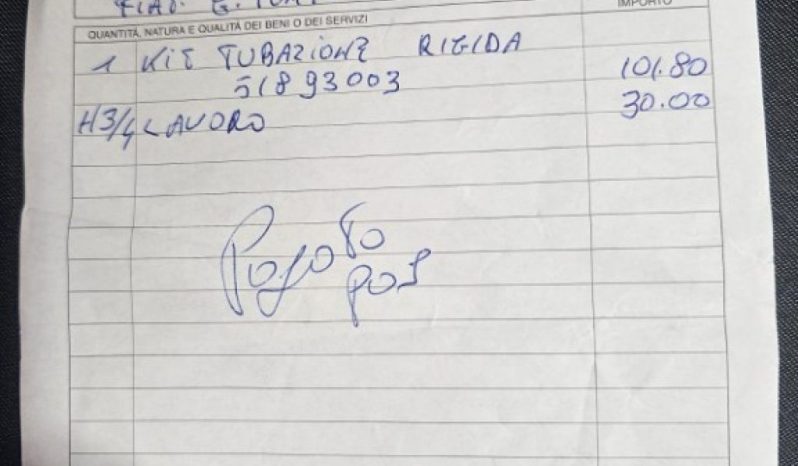 FIAT G. PUNT
QUANTITÀ, NATURA E QUALITÀ DEI BENI O DEI SERVIZI IMPORTO
1 KIT TUBAZIONE RIGIDA 101.80
51893003
H3/4 LAVORO 30.00
Pagato
pos